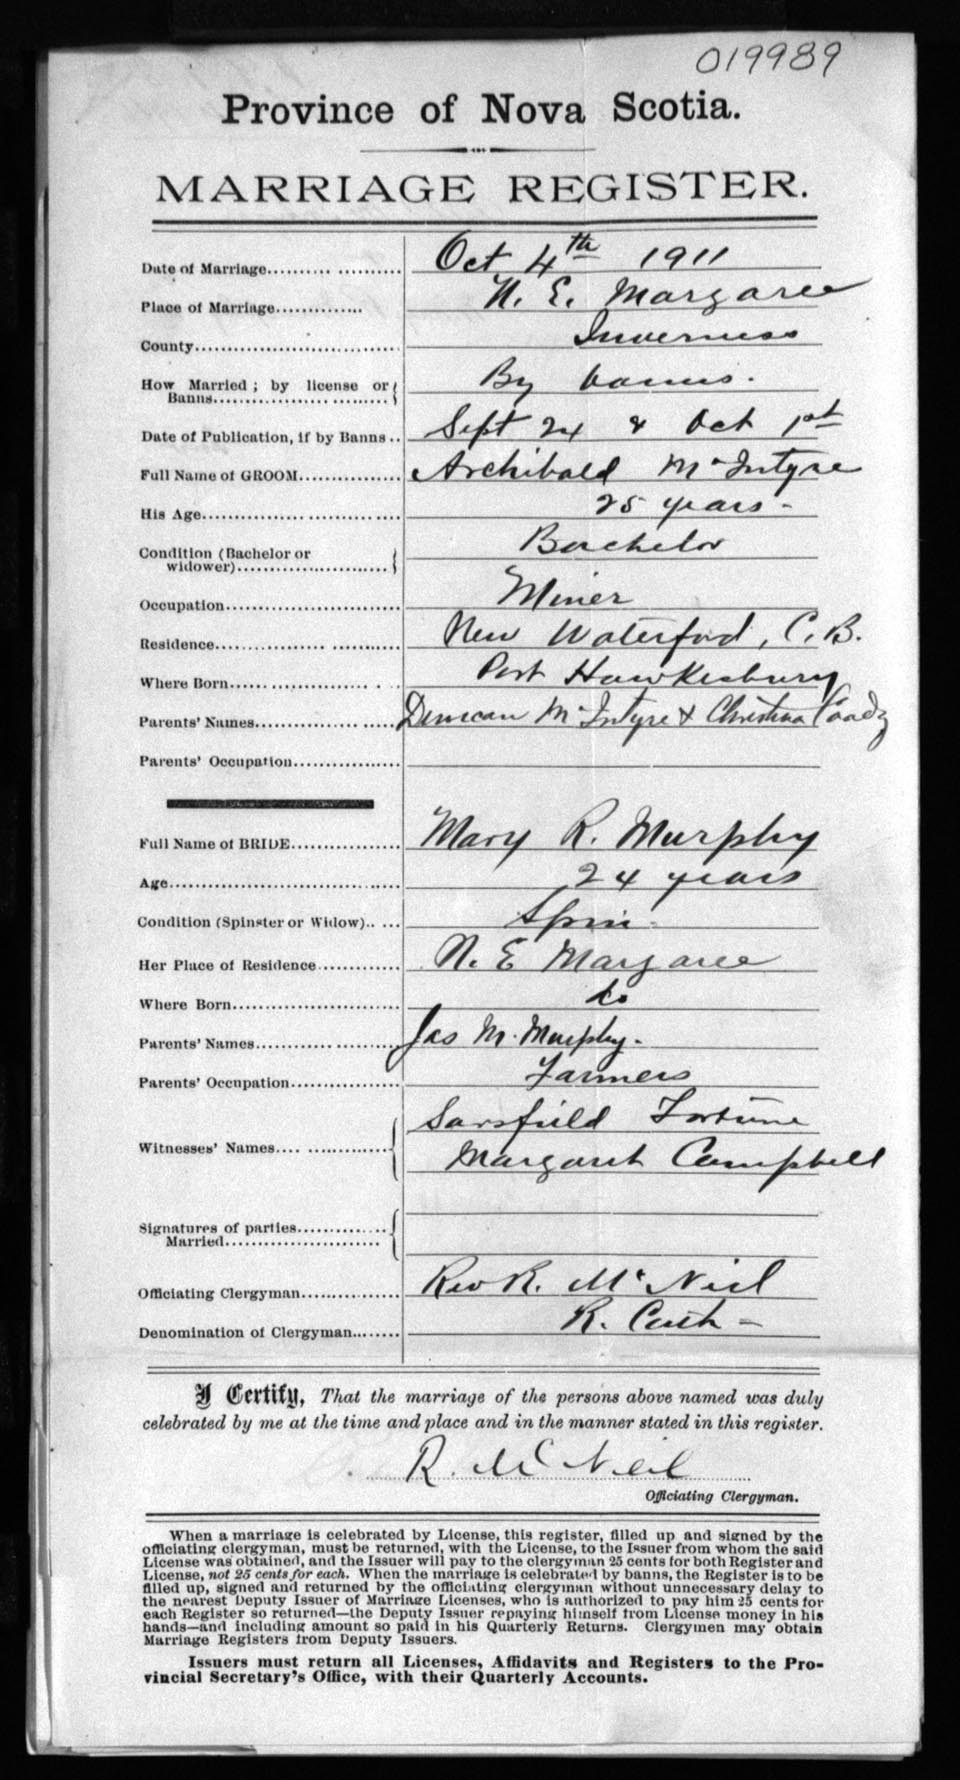 019989
Province of Nova Scotia.
MARRIAGE REGISTER.
Date of Marriage.......... ............ Oct 4th 1911
Place of Marriage............. N. E. Margaree
County................................ Inverness
How Married ; by license or
Banns.................. ......... By banns.
Date of Publication, if by Banns .. Sept 24 & Oct 1st
Full Name of GROOM................. Archibald McIntyre
His Age................ ............... 25 years -
Condition (Bachelor or
widower)........................ Bachelor
Occupation........................... Miner
Residence................. ........... New Waterford, C. B.
Where Born...................... . .. Port Hawkesbury
Parents' Names................. ..... Duncan McIntyre & Christina Coady
Parents' Occupation..................
Full Name of BRIDE.................. Mary R. Murphy
Age...................................... 24 years
Condition (Spinster or Widow).. ... Spin-
Her Place of Residence.............. N. E Margaree
Where Born............................ do
Parents' Names............. ......... Jas M. Murphy.
Parents' Occupation.................. Farmers
Witnesses' Names.... .............. Sarsfield Fortune
Margaret Campbell
Signatures of parties...............
Married..........................
Officiating Clergyman................ Rev R. McNeil
Denomination of Clergyman........ R. Cath -
I Certify, That the marriage of the persons above named was duly
celebrated by me at the time and place and in the manner stated in this register.
R. McNeil
Officiating Clergyman.
When a marriage is celebrated by License, this register, filled up and signed by the
officiating clergyman, must be returned, with the License, to the Issuer from whom the said
License was obtained, and the Issuer will pay to the clergyman 25 cents for both Register and
License, not 25 cents for each. When the marriage is celebrated by banns, the Register is to be
filled up, signed and returned by the officiating clergyman without unnecessary delay to
the nearest Deputy Issuer of Marriage Licenses, who is authorized to pay him 25 cents for
each Register so returned—the Deputy Issuer repaying himself from License money in his
hands—and including amount so paid in his Quarterly Returns. Clergymen may obtain
Marriage Registers from Deputy Issuers.
Issuers must return all Licenses, Affidavits and Registers to the Pro-
vincial Secretary's Office, with their Quarterly Accounts.